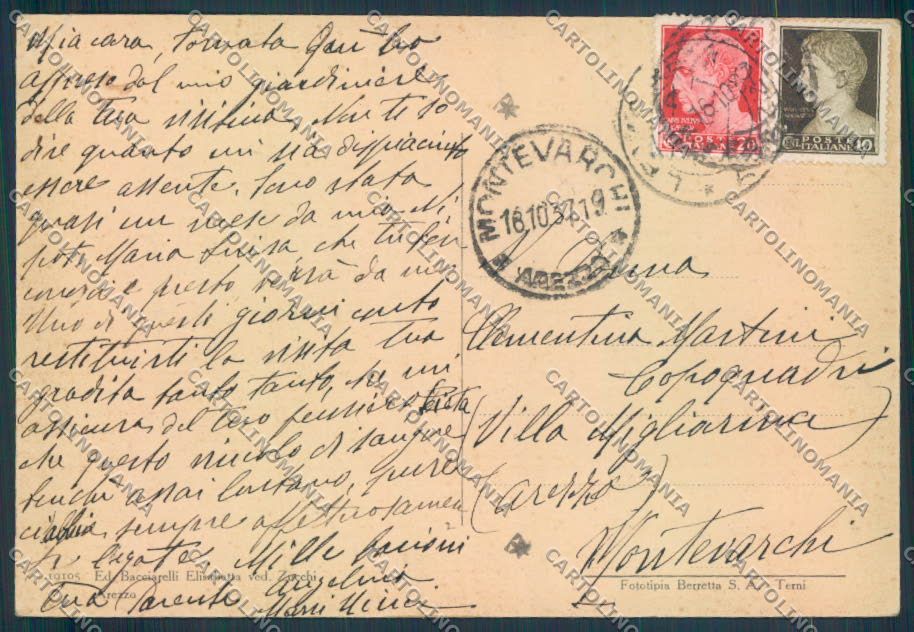 Mia cara, tornata qui ho
appreso dal mio giardiniere
della tua visitina. Non ti so
dire quanto mi sia dispiaciuto
essere assente. Sono stata
quasi un mese da mia Ni
pote Maria Luisa che
e presto verrà da me
Uno di questi giorni conto
restituirti la visita tua
gradita tanto tanto, che mi
assicura del tuo pensiero. Lieta
che questo vincolo di sangue
benchè assai lontano, pure
ci abbia sempre affettuosamen
te legate. Mille bacioni
tua parente
19105 Ed. Bacciarelli Elisabetta ved. Zucchi
Arezzo
POSTE ITALIANE
20
POSTE ITALIANE
10
MONTEVARCHI
18.10.37.19
AREZZO
Clementina Martini
Capoquadri
(Villa Migliarina)
(Arezzo)
Montevarchi
Fototipia Berretta S. A. - Terni
CARTOLINOMANIA